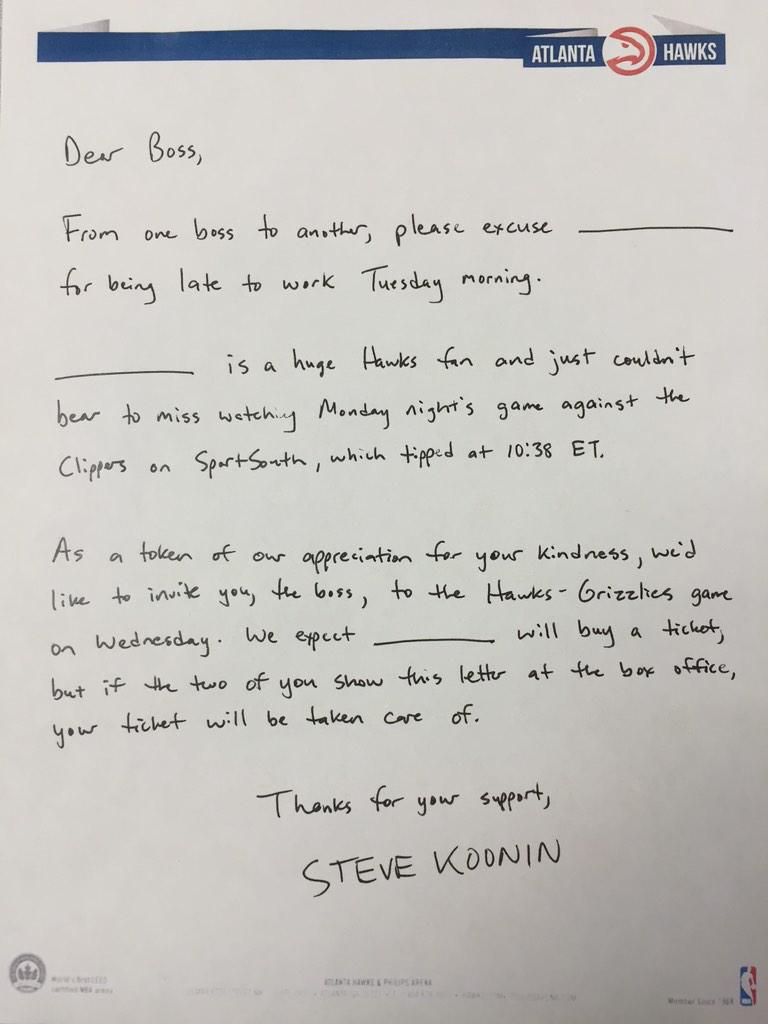 ATLANTA HAWKS
Dear Boss,
From one boss to another, please excuse ____________
for being late to work Tuesday morning.
____________ is a huge Hawks fan and just couldn't
bear to miss watching Monday night's game against the
Clippers on SportSouth, which tipped at 10:38 ET.
As a token of our appreciation for your kindness, we'd
like to invite you, the boss, to the Hawks-Grizzlies game
on Wednesday. We expect __________ will buy a ticket,
but if the two of you show this letter at the box office,
your ticket will be taken care of.
Thanks for your support,
STEVE KOONIN
World's first LEED
certified NBA arena
ATLANTA HAWKS & PHILIPS ARENA
Member Since 1968
NBA